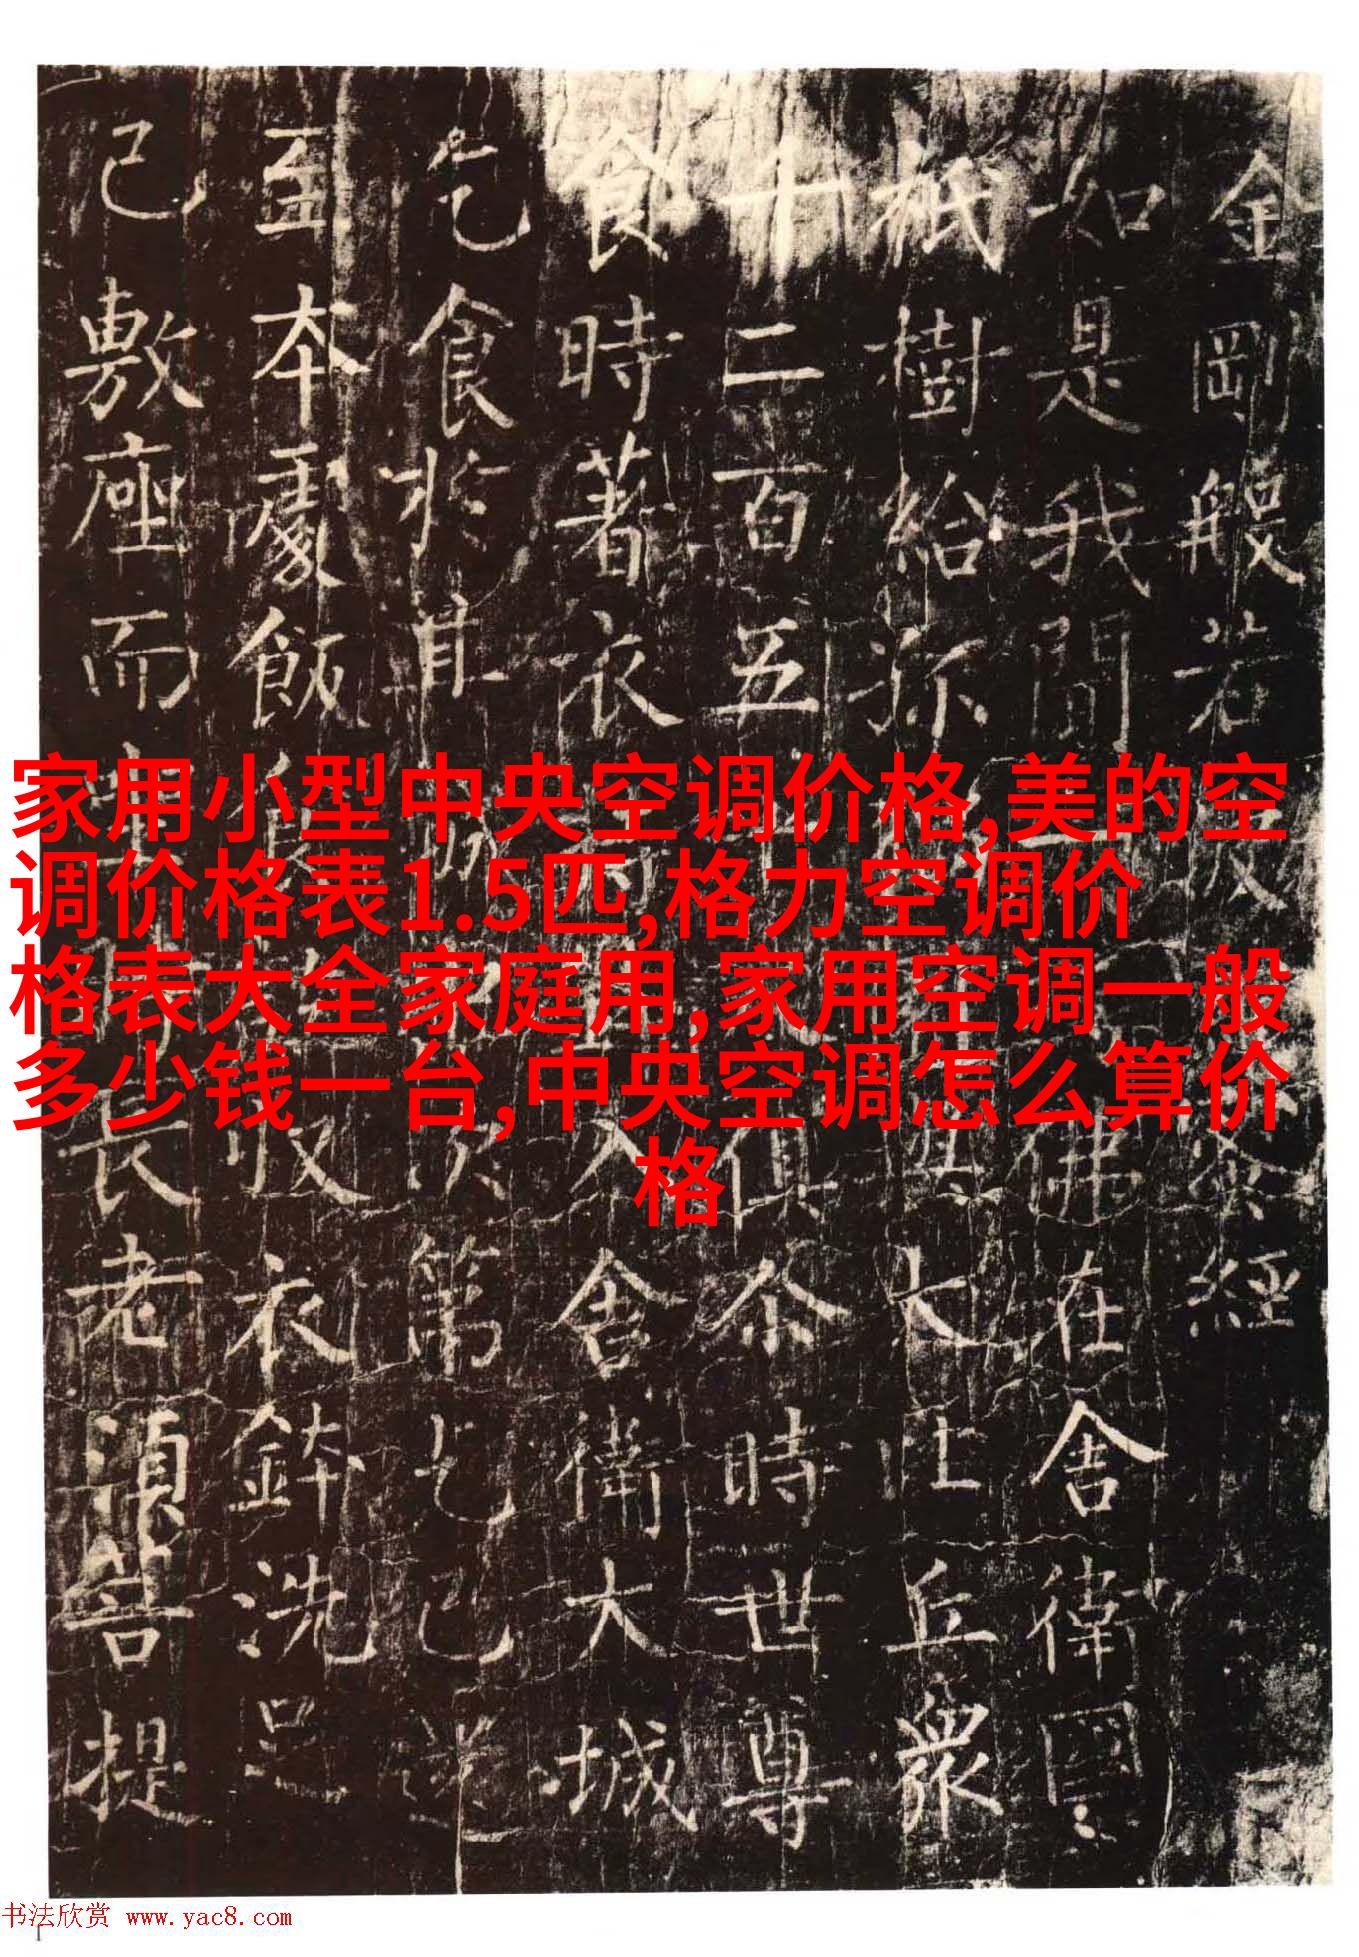 金剛般若經
如是我聞佛在舍衛國
祇樹給孤大比丘衆
千二百五俱尒時世尊
食時著衣入舍衛大城
乞食於其城次第乞已還
至本處飯食收衣鉢洗足
已敷座而長老須菩提
家用小型中央空调价格,美的空
调价格表1.5匹,格力空调价
格表大全家庭用,家用空调一般
多少钱一台,中央空调怎么算价
格
书法欣赏 www.yac8.com